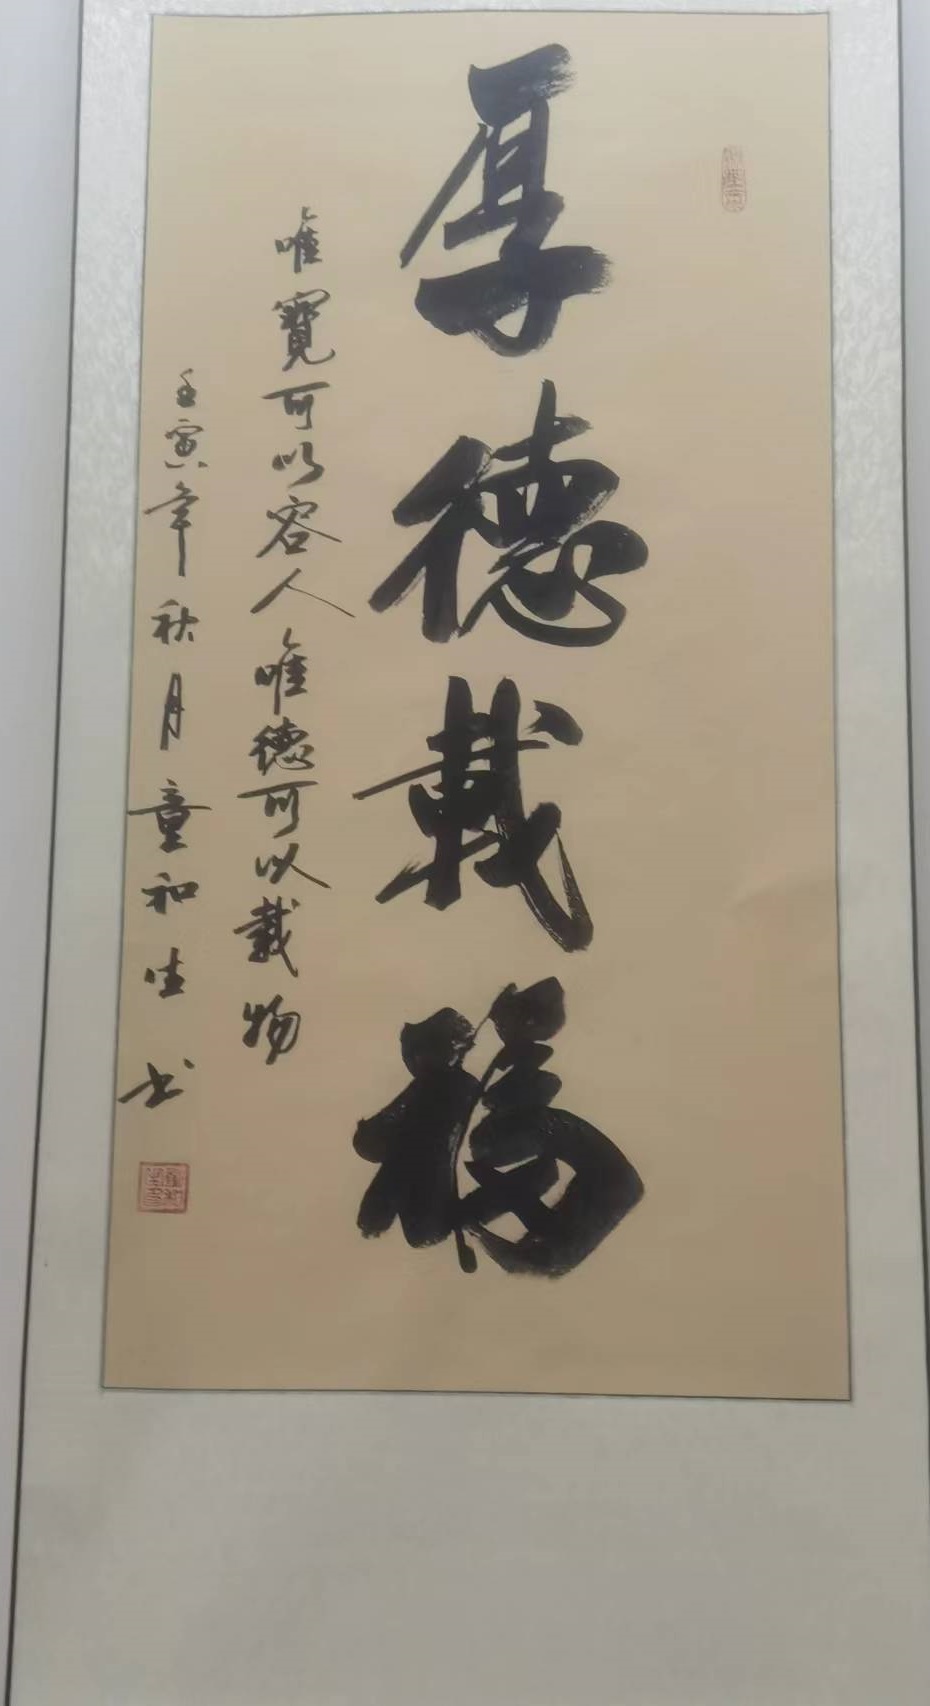 厚德載福
唯寬可以容人唯德可以載物
壬寅年秋月童和生书